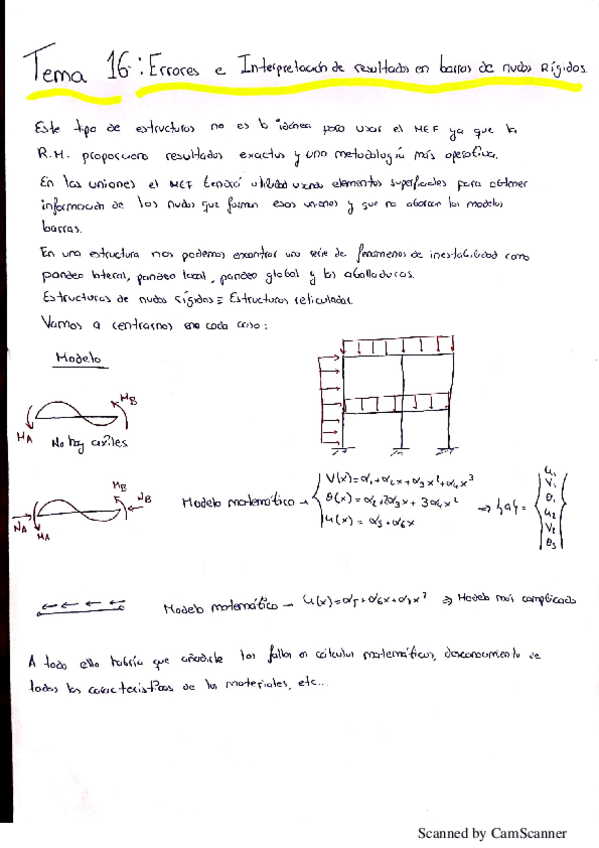 Tema 16: Errores e Interpretación de resultados en barras de nudos Rígidos.
Este tipo de estructuras no es lo idónea para usar el MEF ya que la
R.M. proporciona resultados exactos y una metodología más operativa.
En las uniones el MEF tendrá utilidad usando elementos superficiales para obtener
información de los nudos que forman esas uniones y que no abarcan los modelos
barras.
En una estructura nos podemos encontrar una serie de fenómenos de inestabilidad como
pandeo lateral, pandeo local, pandeo global y las abolladuras.
Estructuras de nudos rígidos ≡ Estructuras reticuladas
Vamos a centrarnos en cada caso:
Modelo
M_A
M_B
No hay axiles
N_A
M_A
M_B
N_B
Modelo matemático → { V(x) = α₁+α₂x+α₃x²+α₄x³
θ(x) = α₂+2α₃x+3α₄x²
u(x) = α₅+α₆x
⇒ {a} = { u₁
V₁
θ₁
u₂
V₂
θ₂ }
Modelo matemático → u(x) = α₅+α₆x+α₇x² ⇒ Modelo más complicado
A todo ello habría que añadirle los fallos en cálculos matemáticos, desconocimiento de
todas las características de los materiales, etc...
Scanned by CamScanner